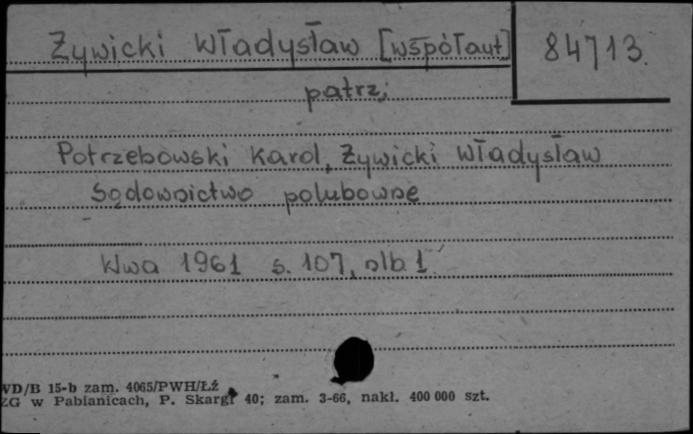 Żywicki Władysław [współaut] 84713.
patrz:
Potrzebowski Karol, Żywicki Władysław
Sądownictwo polubowne
Wwa 1961 s. 107, nlb 1
WD/B 15-b zam. 4065/PWH/Łź
ZG w Pabianicach, P. Skargi 40; zam. 3-66, nakł. 400 000 szt.